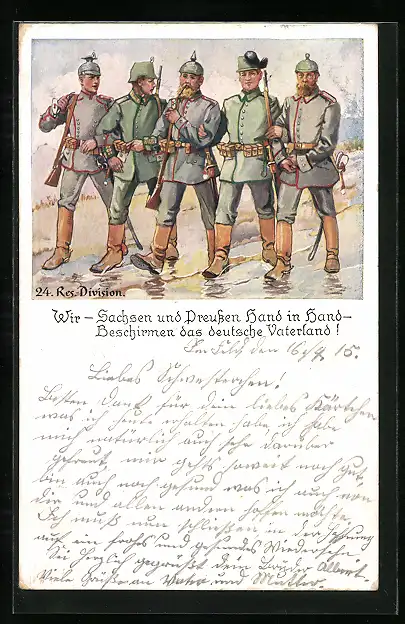 24. Res. Division.
Wir – Sachsen und Preußen Hand in Hand –
Beschirmen das deutsche Vaterland!
Im Feld den 16/4 15.
Liebes Schwesterchen!
Besten Dank für dein liebes Kärtchen
was ich heute erhalten habe ich habe
mich natürlich auch sehr darüber
gefreut, mir gehts soweit noch gut
bin auch noch gesund was ich auch von
dir und allen andern hoffen möchte
Ich muß nun schließen in der Hoffnung
auf ein frohes und gesundes Wiedersehn
Sei herzlich gegrüßt dein Bruder Albert
Viele Grüße an Vater und Mutter.